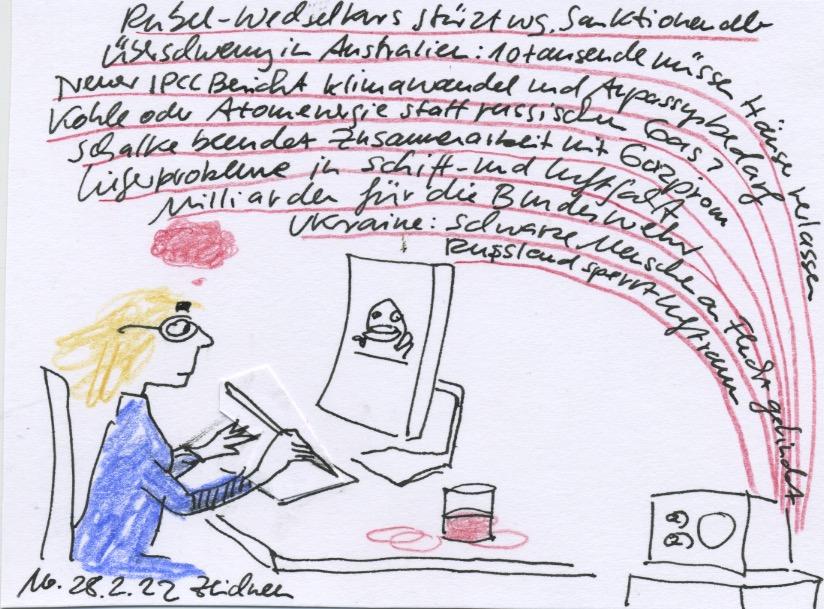 Rubel-Wechselkurs stürzt wg. Sanktionen ab
Überschwemmung in Australien: 10tausende müssen Häuser verlassen
Neuer IPCC Bericht Klimawandel und Anpassungsbedarf
Kohle oder Atomenergie statt russischem Gas?
Schalke beendet Zusammenarbeit mit Gazprom
Lieferprobleme in Schiff- und Luftfahrt
Milliarden für die Bundeswehr
Ukraine: schwarze Menschen an Flucht gehindert
Russland sperrt Luftraum
Mo. 28.2.22 Zeichnen